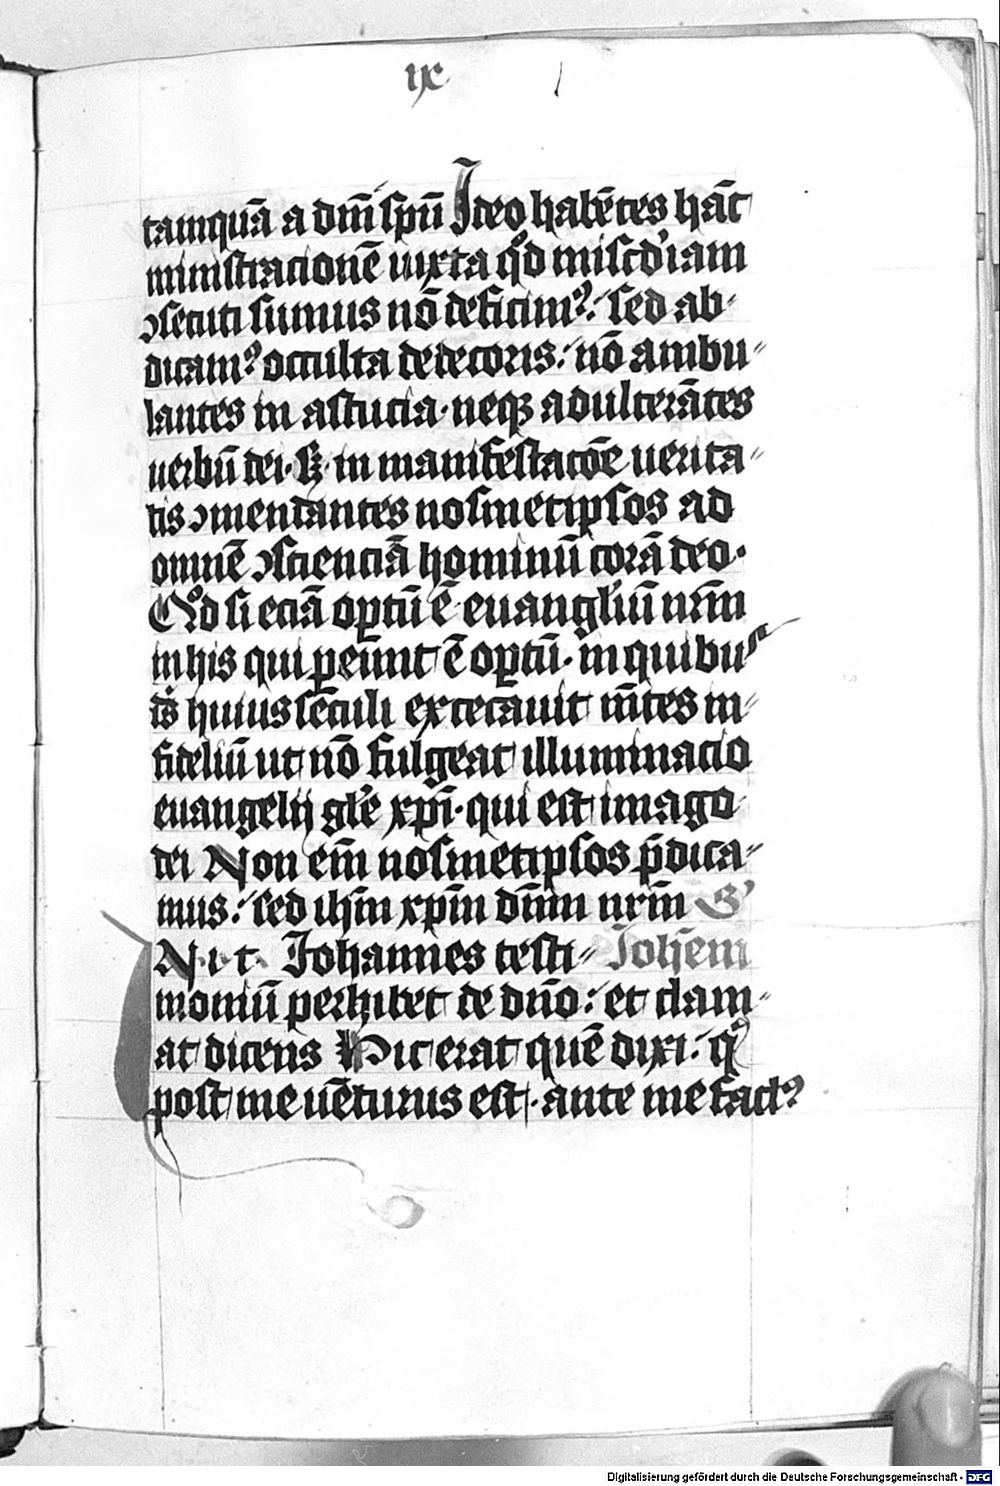 ijc
tamquā a dn̄i sp̄u Ideo habētes hāc
ministracionē iuxta qd̊ mis̄cdiam
ↄsecuti sumus nō deficimꝰ: sed ab⸗
dicamꝰ occulta dedecoris: nō ambu⸗
lantes in astucia· neqꝫ adulterātes
verbū dei· sꝫ in manifestacōe uerita⸗
tis ↄmendantes nosmetipsos ad
omnē ↄscienciā hominū corā deo·
Qd̊ si eciā opꝑtū ē euangliū nr̄m
in his qui ꝑeūnt ē opꝑtū· in quibus
ds̄ huius sēculi excecauit m̄tes in⸗
fideliū ut nō fulgeat illuminacio
euangelij gl̄e xp̄i· qui est imago
dei Non em̄ nosmetipsos p̄dica⸗
mus: sed ihm̄ xp̄m dn̄m nr̄m S'
N· i· t· Johannes testi⸗ Johēm
moniū perhibet de dn̄o: et clam⸗
at dicens Hic erat quē dixi: qͥ
post me uēturus est· ante me factꝰ
Digitalisierung gefördert durch die Deutsche Forschungsgemeinschaft - DFG